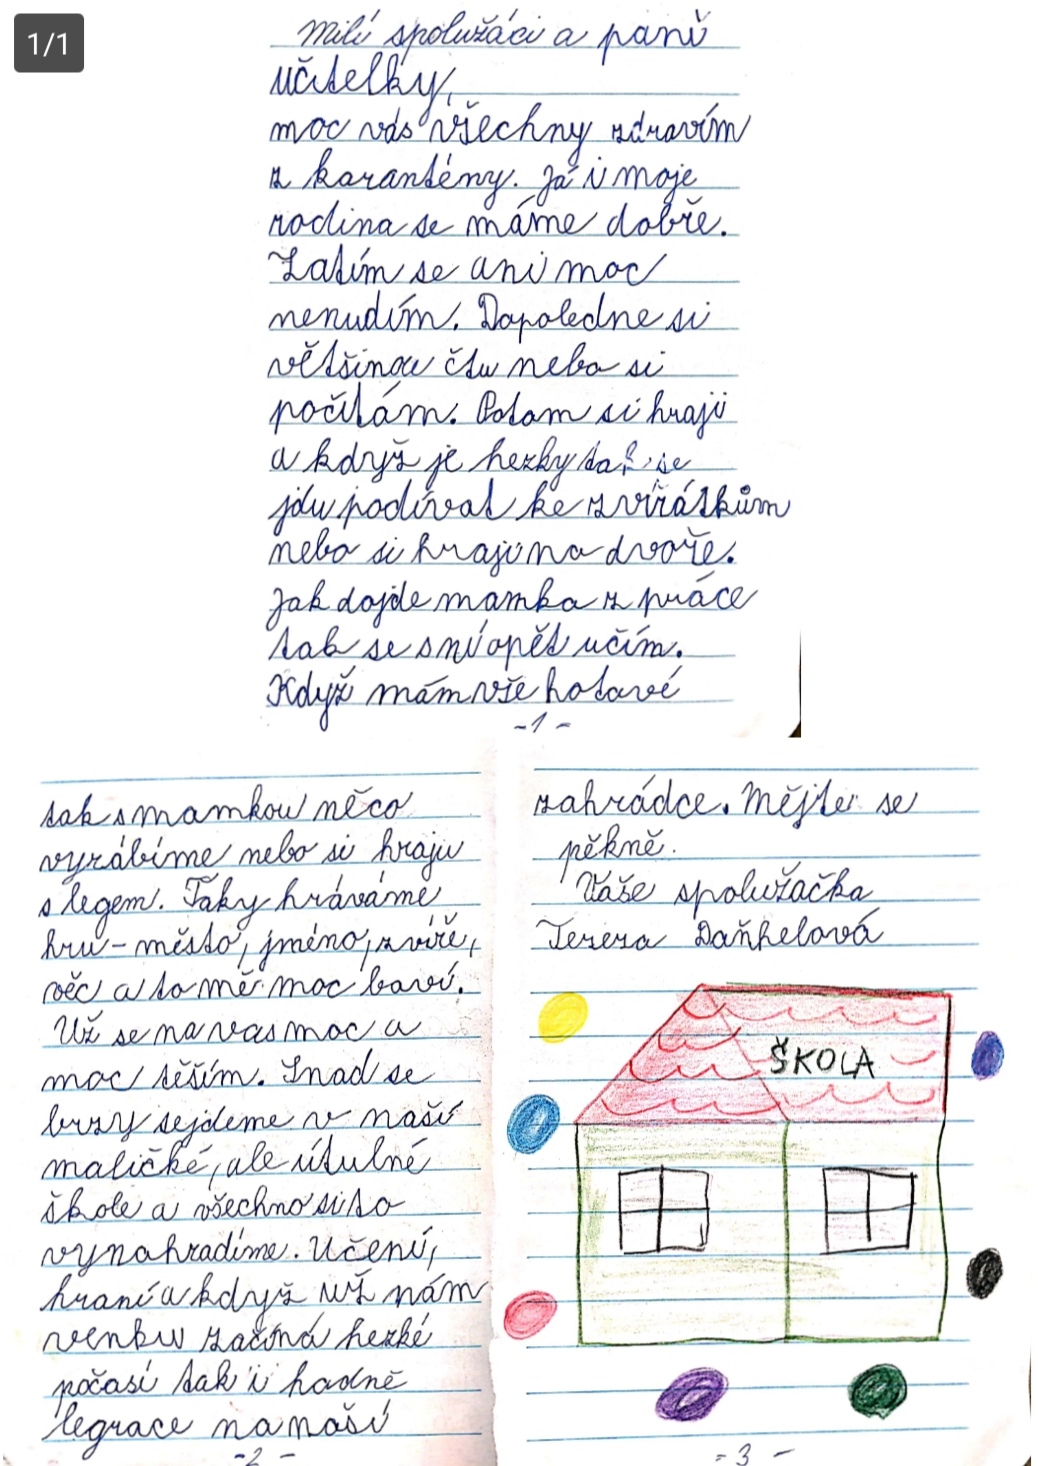 1/1
Milí spolužáci a paní
učitelky,
moc vás všechny zdravím
z karantény. Já i moje
rodina se máme dobře.
Zatím se ani moc
nenudím. Dopoledne si
většinou čtu nebo si
počítám. Potom si hraji
a když je hezky tak se
jdu podívat ke zvířátkům
nebo si hraji na dvoře.
Jak dojde mamka z práce
tak se s ní opět učím.
Když mám vše hotové
-1-
tak s mamkou něco
vyrábíme nebo si hraju
s legem. Taky hráváme
hru - město, jméno, zvíře,
věc a to mě moc baví.
Už se na vas moc a
moc těším. Snad se
brzy sejdeme v naší
maličké, ale útulné
škole a všechno si to
vynahradíme. Učení,
hraní a když už nám
venku začíná hezké
počasí tak i hodně
legrace na naší
-2-
zahrádce. Mějte se
pěkně.
Vaše spolužačka
Tereza Daňhelová
ŠKOLA
-3-